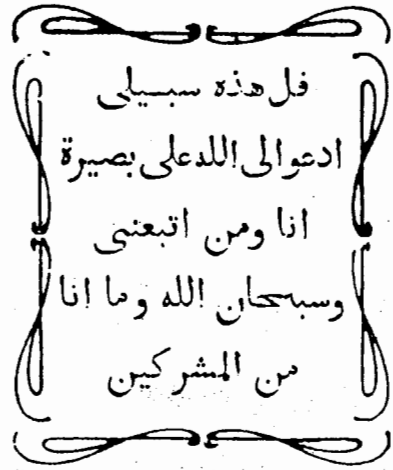 قل هذه سبيلى
ادعوالى الله على بصيرة
انا ومن اتبعنى
وسبحان الله وما انا
من المشركين